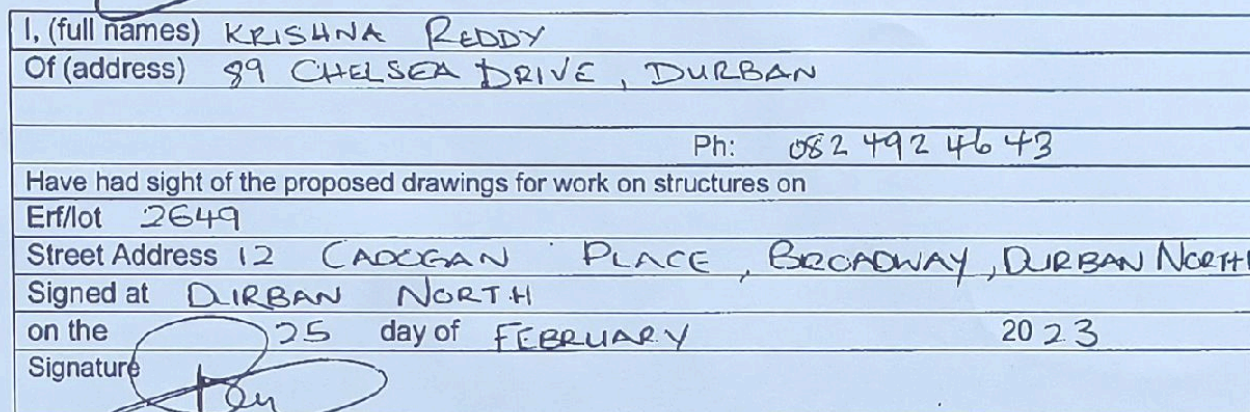 I, (full names) KRISHNA REDDY
Of (address) 89 CHELSEA DRIVE, DURBAN
Ph: 082 492 4643
Have had sight of the proposed drawings for work on structures on
Erf/lot 2649
Street Address 12 CADOGAN PLACE, BROADWAY, DURBAN NORTH
Signed at DURBAN NORTH
on the 25 day of FEBRUARY 2023
Signature